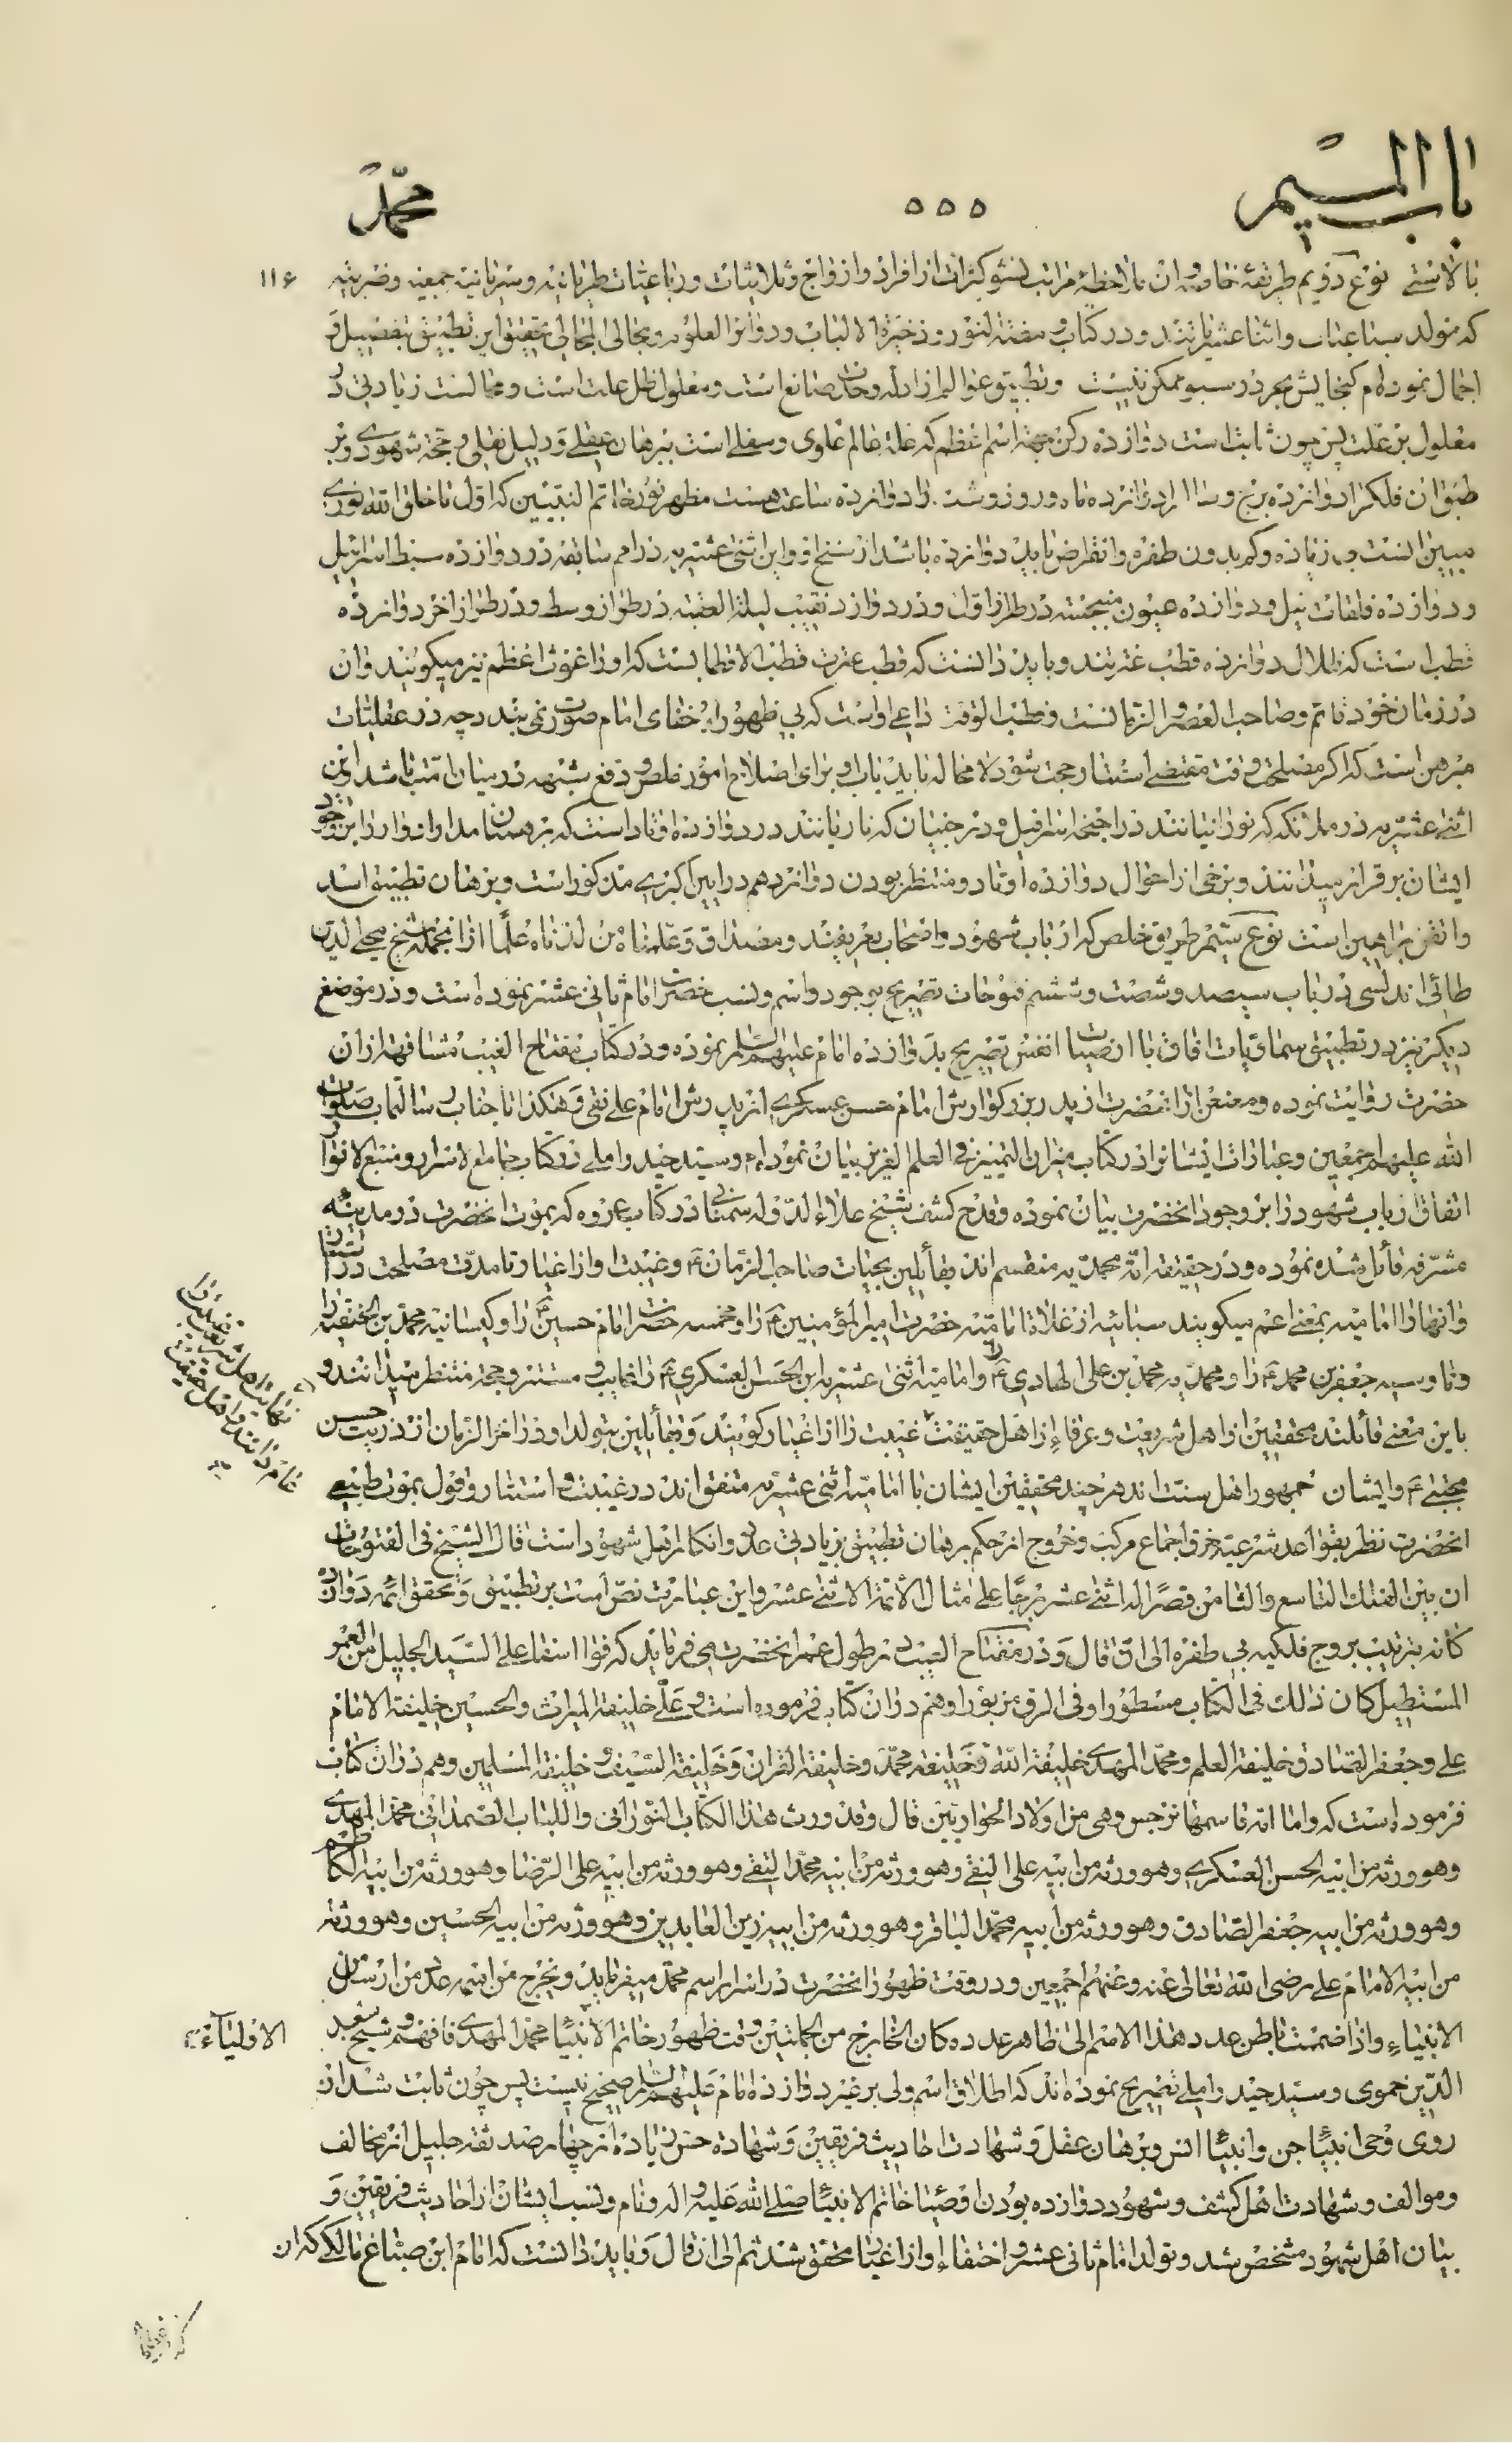 باب المیم
۵۵۵
محمد
۱۱۶
بالاستی نوع دویم طریقهٔ خاویه و آن بملاحظهٔ مراتب نشو کثرات از افراد و ازواج و ثلاثیات و رباعیات طربانیه و سریانیه جمعیه و ضربیه
که مولد سباعیات و اثناعشریاتند و در کتاب و ذخیرة الالباب و دوائر العلوم و مجالی المجالی تحقیق این تطبیق بتفصیل و
اجمال نموده‌ام گنجایش بحر در سبو ممکن نیست و تطبیق عوالم از ادله وحدت صانع است و معلول ظل علت است و محالست زیادتی در
معلول بر علت پس چون ثابت است دوازده رکن بجهة اسم اعظم که علة عالم علوی و سفلی است ببرهان عقلی و دلیل نقلی و حجة شهودی و بر
طبق آن فلک را دوازده برج و سال را دوازده ماه و روز و شب را دوازده ساعت هست مظهر نور خاتم النبیین که اول ما خلق الله نوری
مبین آنست بی زیاده و کم بدون طفره و انقراض باید دوازده باشد از سنخ او و این اثنی عشریه در امم سابقه در دوازده سبط اسرائیل
و دوازده فلقات نیل و دوازده عیون منبجسه در طراز اول و در دوازده نقیب لیلة العقبه در طراز وسط و در طراز آخر دوازده
قطب است که ظلال دوازده قطب عترتند و باید دانست که قطب عترت قطب الاقطابست که او را غوث اعظم نیز میگویند و آن
در زمان خود قائم و صاحب العصر و الزمانست و قطب الوقت داعی اوست که بی ظهور او خفای امام صورت نمی‌بندد چه در عقلیات
مبرهن است که اگر مصلحت وقت مقتضی استتار حجت شود لامحاله باید باب او برای اصلاح امور خلص و دفع شبهه در میان امت باشد و این
اثنی عشریه در ملائکه که نورانیانند در اجنحه اسرافیل و در جنیان که ناریانند در دوازده اوتاد است که برهمنان مدار ادوار را بوجود
ایشان برقرار میدانند و برخی از احوال دوازده اوتاد و منتظر بودن دوازدهم در آیین اکبری مذکور است و برهان تطبیق اسد
و اتقن براهین است نوع سیم طریق خلص که ارباب شهود و اصحاب تعریفند و مصداق و علمناه من لدناه علما از آنجمله شیخ محیی الدین
طائی اندلسی در باب سیصد و شصت و ششم فتوحات تصریح بوجود و اسم و نسب حضرت امام ثانی عشر نموده است و در موضع
دیگر نیز در تطبیق سماویات آفاق با ارضیات انفس تصریح بدوازده امام علیهم السلام نموده و در کتاب مفتاح الغیب مشافهة از آن
حضرت روایت نموده و معنعن از آنحضرت از پدر بزرگوارش امام حسن عسکری از پدرش امام علی نقی و هکذا تا جناب رسالتماب صلوات
الله علیهم اجمعین و عبارات ایشانرا در کتاب میزان التمییز فی العلم العزیز بیان نموده‌ام و سید حیدر آملی در کتاب جامع الاسرار و منبع الانوار
اتفاق ارباب شهود را بر وجود آنحضرت بیان نموده و قدح کشف شیخ علاء الدوله سمنانی در کتاب عروه که بموت آنحضرت در مدینه
مشرفه قائل شده نموده و در حقیقت امة محمدیه منقسم‌اند بقائلین بحیات صاحب الزمان ع و غیبت او از اغیار تا مدت مصلحت در استتار
و آنها را امامیه بمعنی اعم میگویند سبائیه از غلاة امامیه حضرت امیر المؤمنین ع را و مخمسه حضرت امام حسین ع را و کیسانیه محمد بن الحنفیه را
و ناوسیه جعفر بن محمد ع را و محمدیه محمد بن علی الهادی ع را و امامیه اثنی عشریه ابن الحسن العسکری ع را غایب و مستتر و حجة منتظر میدانند و
باین معنی قائلند محققین از اهل شریعت و عرفاء از اهل حقیقت غیبت را از اغیار گویند و بقائلین بتولد او در آخر الزمان از ذریت حسن
مجتبی ع و ایشان جمهور اهل سنت‌اند هر چند محققین ایشان با امامیه اثنی عشریه متفق‌اند در غیبت و استتار و قول بموت طبیعی
آنحضرت نظر بقواعد شرعیه خرق اجماع مرکب و خروج از حکم برهان تطبیق بزیادتی علل و انکار اهل شهود است قال الشیخ فی الفتوحات
ان بین الفلک التاسع و الثامن قصرا له اثنی عشر برجا علی مثال الأئمة الاثنی عشر و این عبارت نص است بر تطبیق و تحقق ائمه دوازده
گانه بترتیب بروج فلکیه بی طفره الی ان قال و در مفتاح الغیب در طول عمر آنحضرت می‌فرماید که فوا اسفاه علی السید الجلیل من العمر
المستطیل کان ذلک فی الکتاب مسطورا و فی الرق مزبورا و هم در آن کتاب فرموده است و علی خلیفة المیراث و الحسین خلیفة الامام
علی و جعفر الصادق خلیفة العلم و محمد المهدی خلیفة الله و خلیفة محمد و خلیفة القران و خلیفة السیف و خلیفة المسلمین و هم در آن کتاب
فرموده است که و اما امه فاسمها نرجس و هی من اولاد الحواریین قال و قد ورث هذا الکتاب النورانی و اللباب الصمدانی محمد المهدی
و هو ورثه من ابیه الحسن العسکری و هو ورثه من ابیه علی النقی و هو ورثه من ابیه محمد التقی و هو ورثه من ابیه علی الرضا و هو ورثه من ابیه الکاظم
و هو ورثه من ابیه جعفر الصادق و هو ورثه من ابیه محمد الباقر و هو ورثه من ابیه زین العابدین و هو ورثه من ابیه الحسین و هو ورثه
من ابیه الامام علی رضی الله تعالی عنه و عنهم اجمعین و در وقت ظهور آنحضرت در اسرار اسم محمد میفرماید و یخرج من اسمه عدد من ارسل من
الانبیاء و اذا ضمت باطن عدد هذا الاسم الی ظاهر عدده کان الخارج من الجملتین وقت ظهور خاتم الانبیا محمد المهدی فافهم و شیخ سعد
الاولیاء
الدین حموی و سید حیدر آملی تصریح نموده‌اند که اطلاق اسم ولی بر غیر دوازده امام علیهم السلام صحیح نیست پس چون ثابت شد از
روی وحی انبیا جن و انبیا انس و برهان عقل و شهادت احادیث فریقین و شهاده حس زیاده از چهار صد ثقه جلیل از مخالف
و موالف و شهادت اهل کشف و شهود دوازده بودن اوصیا خاتم الانبیا صلی الله علیه و اله و نام و نسب ایشان از احادیث فریقین و
بیان اهل شهود مشخص شد و تولد امام ثانی عشر و اختفاء او از اغیار محقق شد ثم الی ان قال و باید دانست که امام ابن صباغ مالکی که از